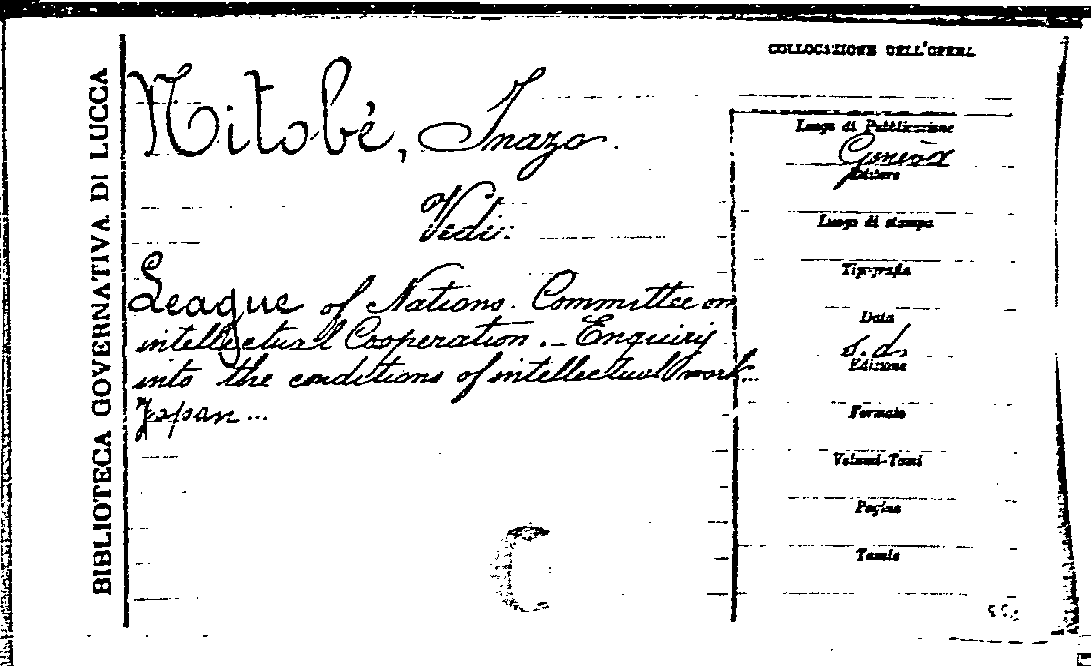 BIBLIOTECA GOVERNATIVA DI LUCCA
Nitobé, Inazo.
Vedi:
League of Nations. Committee on
intellectual Cooperation. - Enquiry
into the conditions of intellectual work...
Japan...
C
COLLOCAZIONE DELL'OPERA
Luogo di Pubblicazione
Genève
Editore
Luogo di stampa
Tipografia
Data
s.d.
Edizione
Formato
Volumi-Tomi
Pagine
Tavole